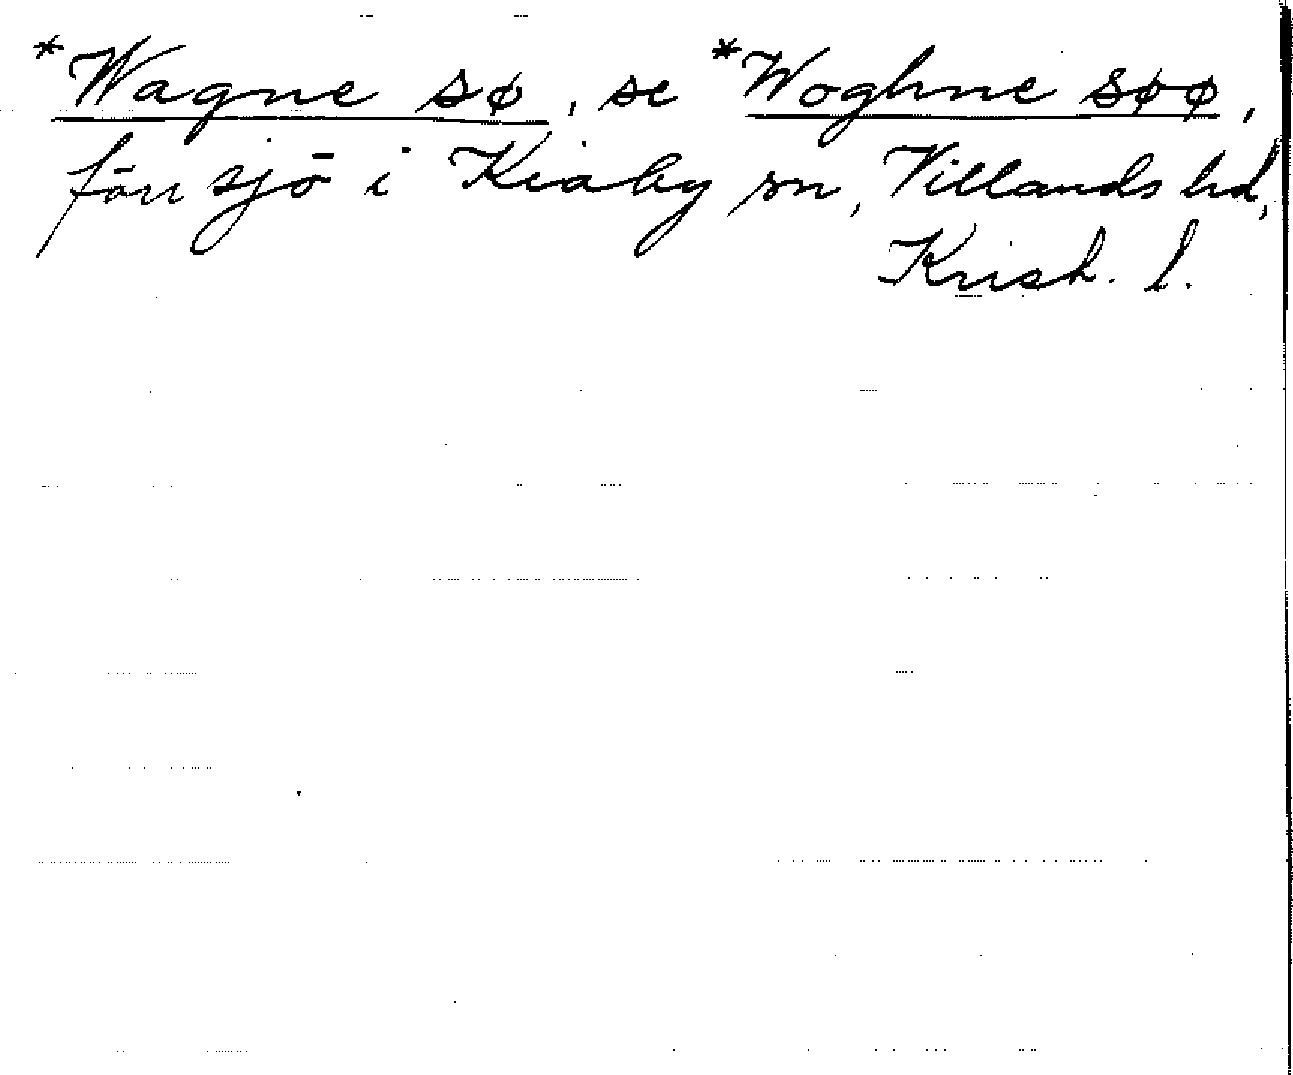 *Wagne sø, se *Woghne søø,
förr sjö i Kiaby sn, Villands hd,
Krist. l.